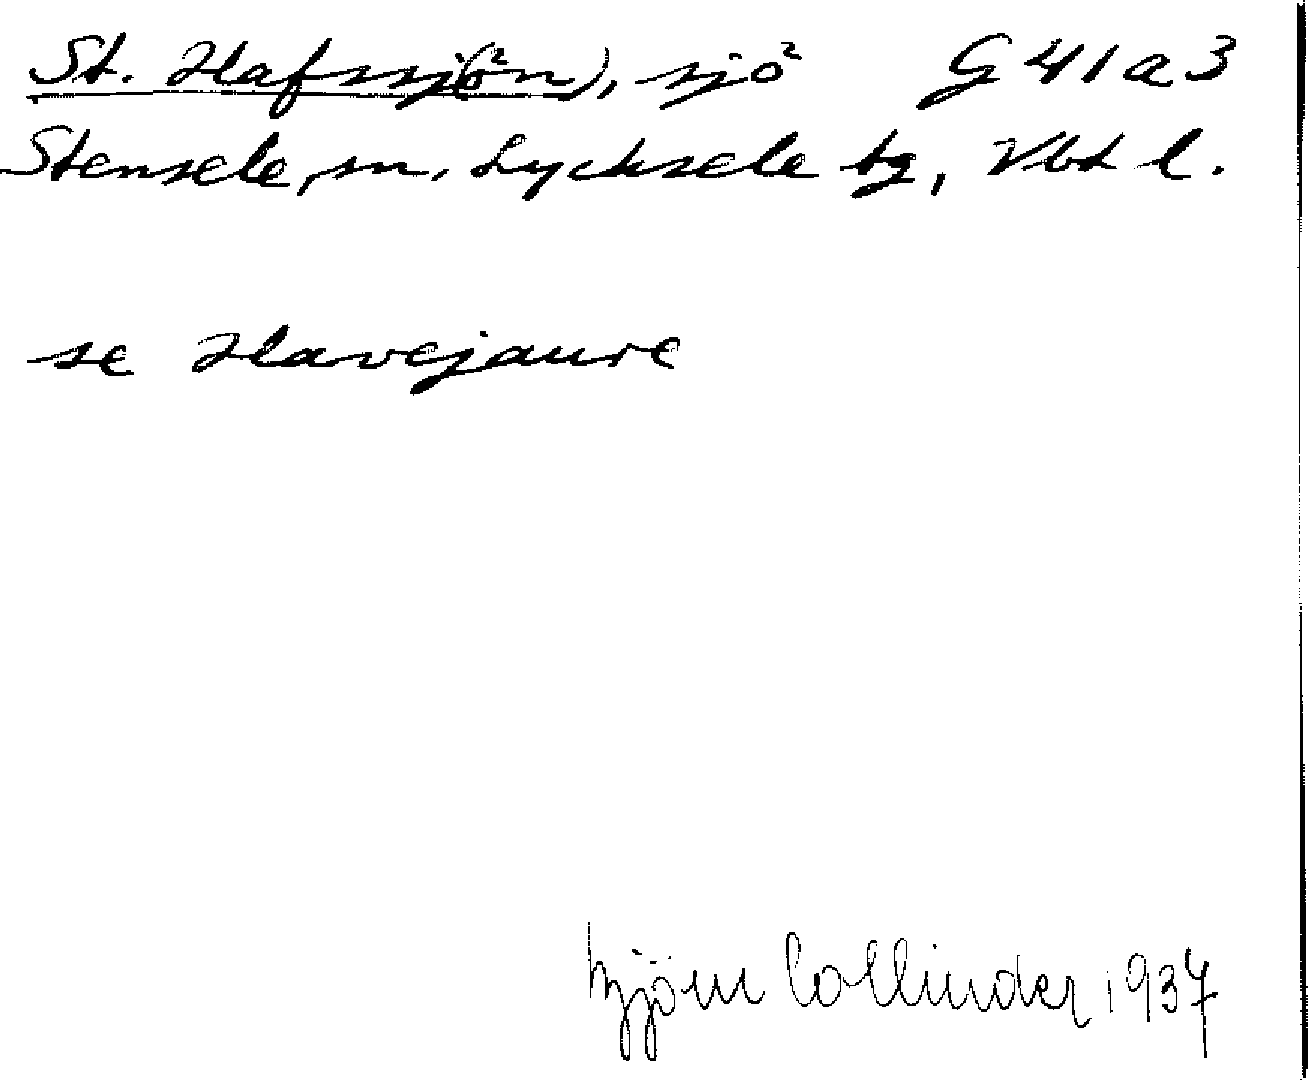 St. Hafssj(ön), sjö G 41 a 3
Stensele, sn, Lycksele tg, Vbt l.
se Havejaure
Björn Collinder 1937